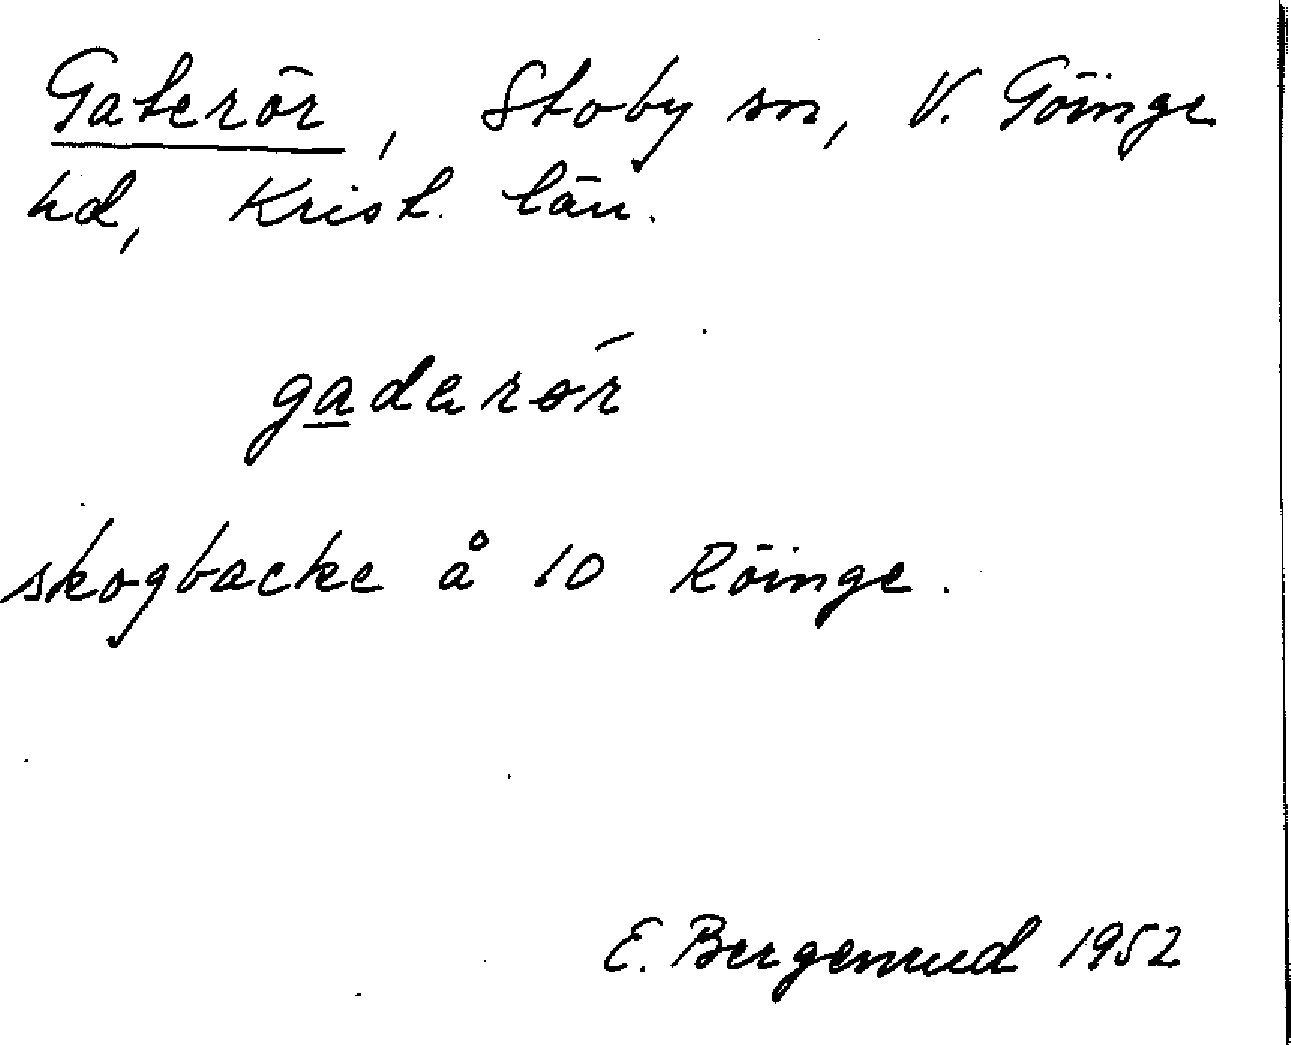 Gaterör, Stoby sn, V. Göinge
hd, Krist. län.
gaderør
skogbacke å 10 Röinge.
E. Bergenrud 1952